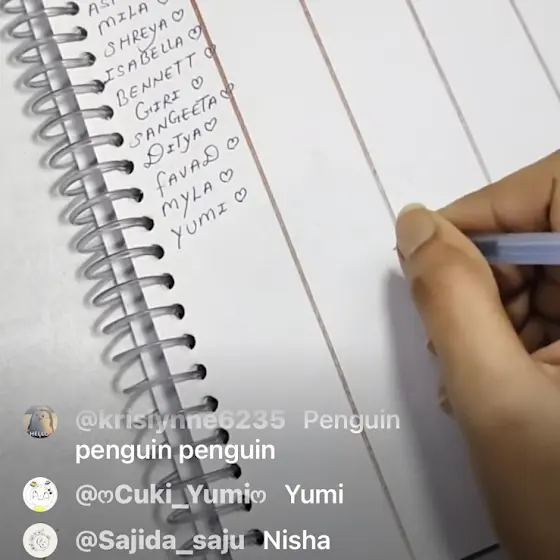 MILA ♡
SHREYA ♡
ISABELLA ♡
BENNETT ♡
GIRI ♡
SANGEETA ♡
DITYA ♡
FAVAD ♡
MYLA ♡
YUMI ♡
@krislynne6235 Penguin
penguin penguin
@ო Cuki_Yumiო Yumi
@Sajida_saju Nisha